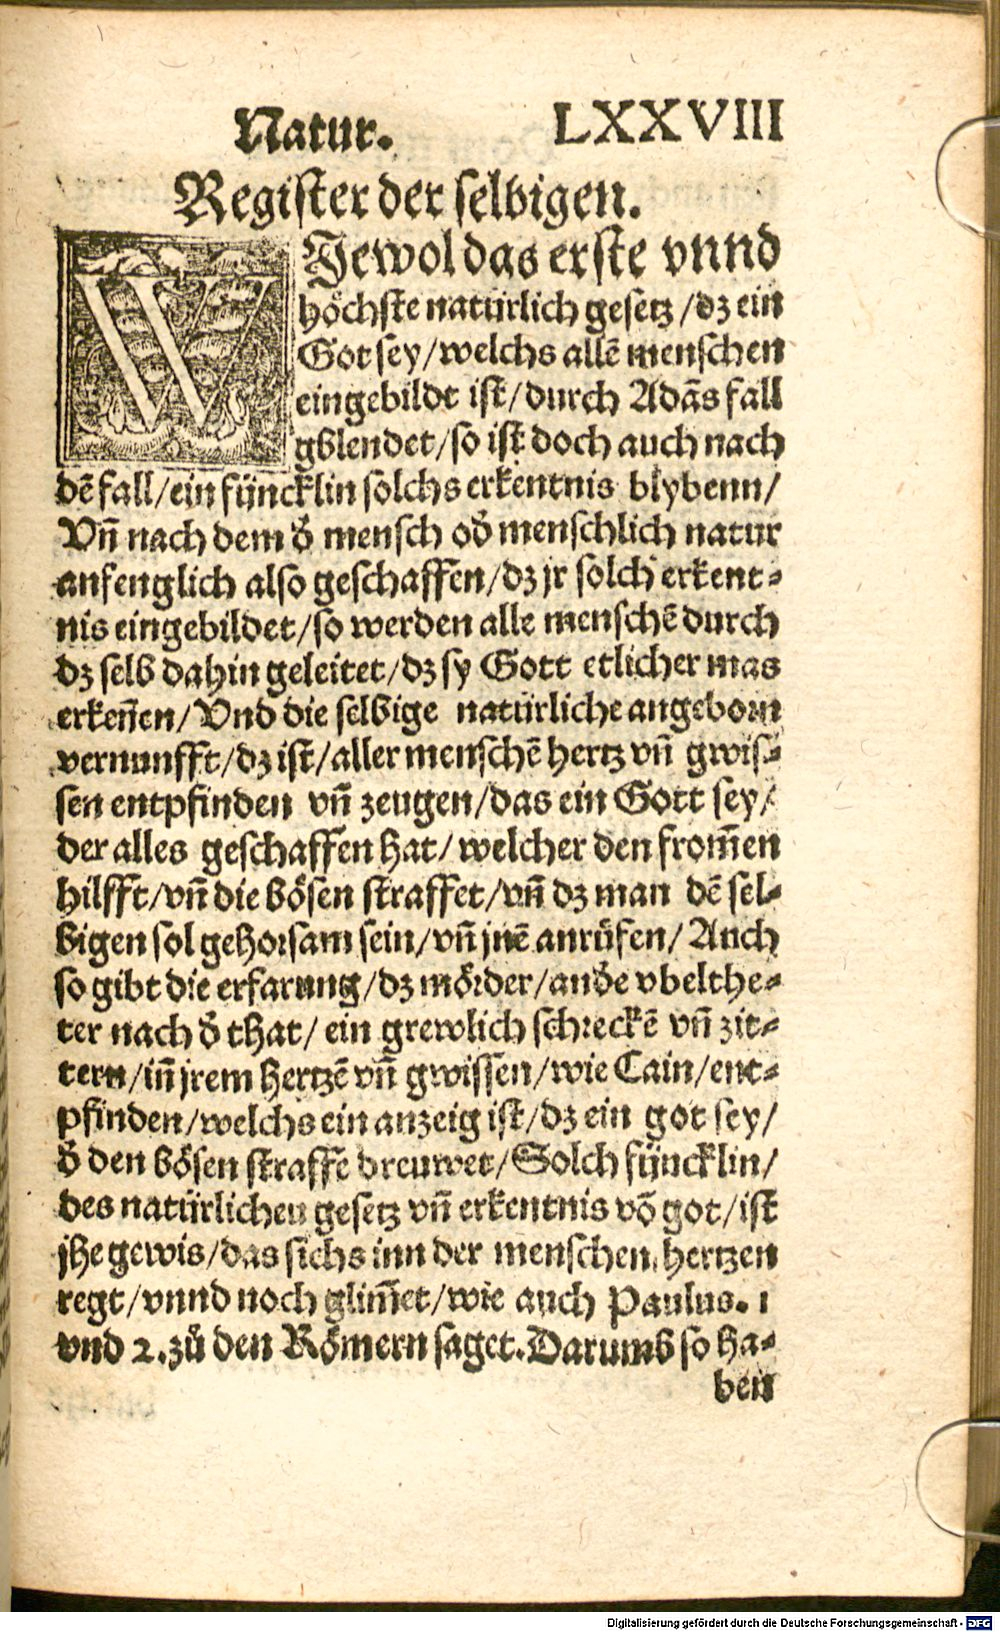 Natur. LXXVIII
Register der selbigen.
WJewol das erste vnnd
höchste natürlich gesetz /dz ein
Got sey/welchs allē menschen
eingebildt ist/durch Adās fall
gblendet/so ist doch auch nach
dē fall/ein füncklin solchs erkentnis blybenn/
Vñ nach dem d̕ mensch od̕ menschlich natur
anfenglich also geschaffen/dz jr solch erkent-
nis eingebildet/so werden alle menschē durch
dz selb dahin geleitet/dz sy Gott etlicher mas
erkeñen/Vnd die selbige natürliche angeborn
vernunfft/dz ist/aller menschē hertz vñ gwis-
sen entpfinden vñ zeugen/das ein Gott sey/
der alles geschaffen hat/welcher den from̄en
hilfft/vñ die bösen straffet/vñ dz man dē sel-
bigen sol gehorsam sein/vñ jnē anrůfen/Auch
so gibt die erfarung/dz mörder/and̕e vbelthe-
ter nach d̕ that/ein grewlich schreckē vñ zit-
tern/iñ jrem hertzē vñ gwissen/wie Cain/ent-
pfinden/welchs ein anzeig ist/dz ein got sey/
d̕ den bösen straffē dreuwet/Solch füncklin/
des natürlichen gesetz vñ erkentnis vō got/ist
jhe gewis/das sichs inn der menschen hertzen
regt/vnnd noch glim̄et/wie auch Paulus. 1
vnd 2. zů den Römern saget. Darumb so ha-
ben
Digitalisierung gefördert durch die Deutsche Forschungsgemeinschaft - DFG